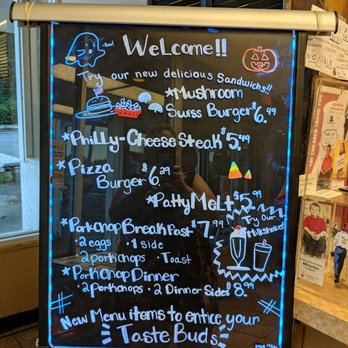 Boo!
Welcome!!
Try our new delicious Sandwichs!!
*Mushroom
Swiss Burger $6.49
*Philly-Cheese Steak $5.49
*Pizza
Burger $6.29
*Patty Melt $5.99
*Porkchop Breakfast $7.99
• 2 eggs • 1 side
2 porkchops • Toast
Try Our
Milkshakes!
*Porkchop Dinner
• 2 Porkchops • 2 Dinner Sides $8.99
New Menu items to entice your
Taste Buds